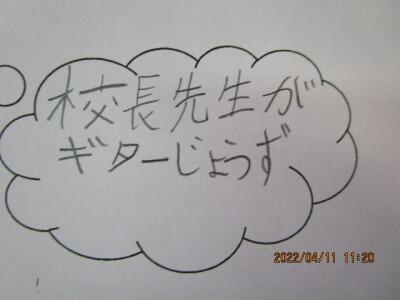 校長先生が
ギターじょうず
2022/04/11 11:20